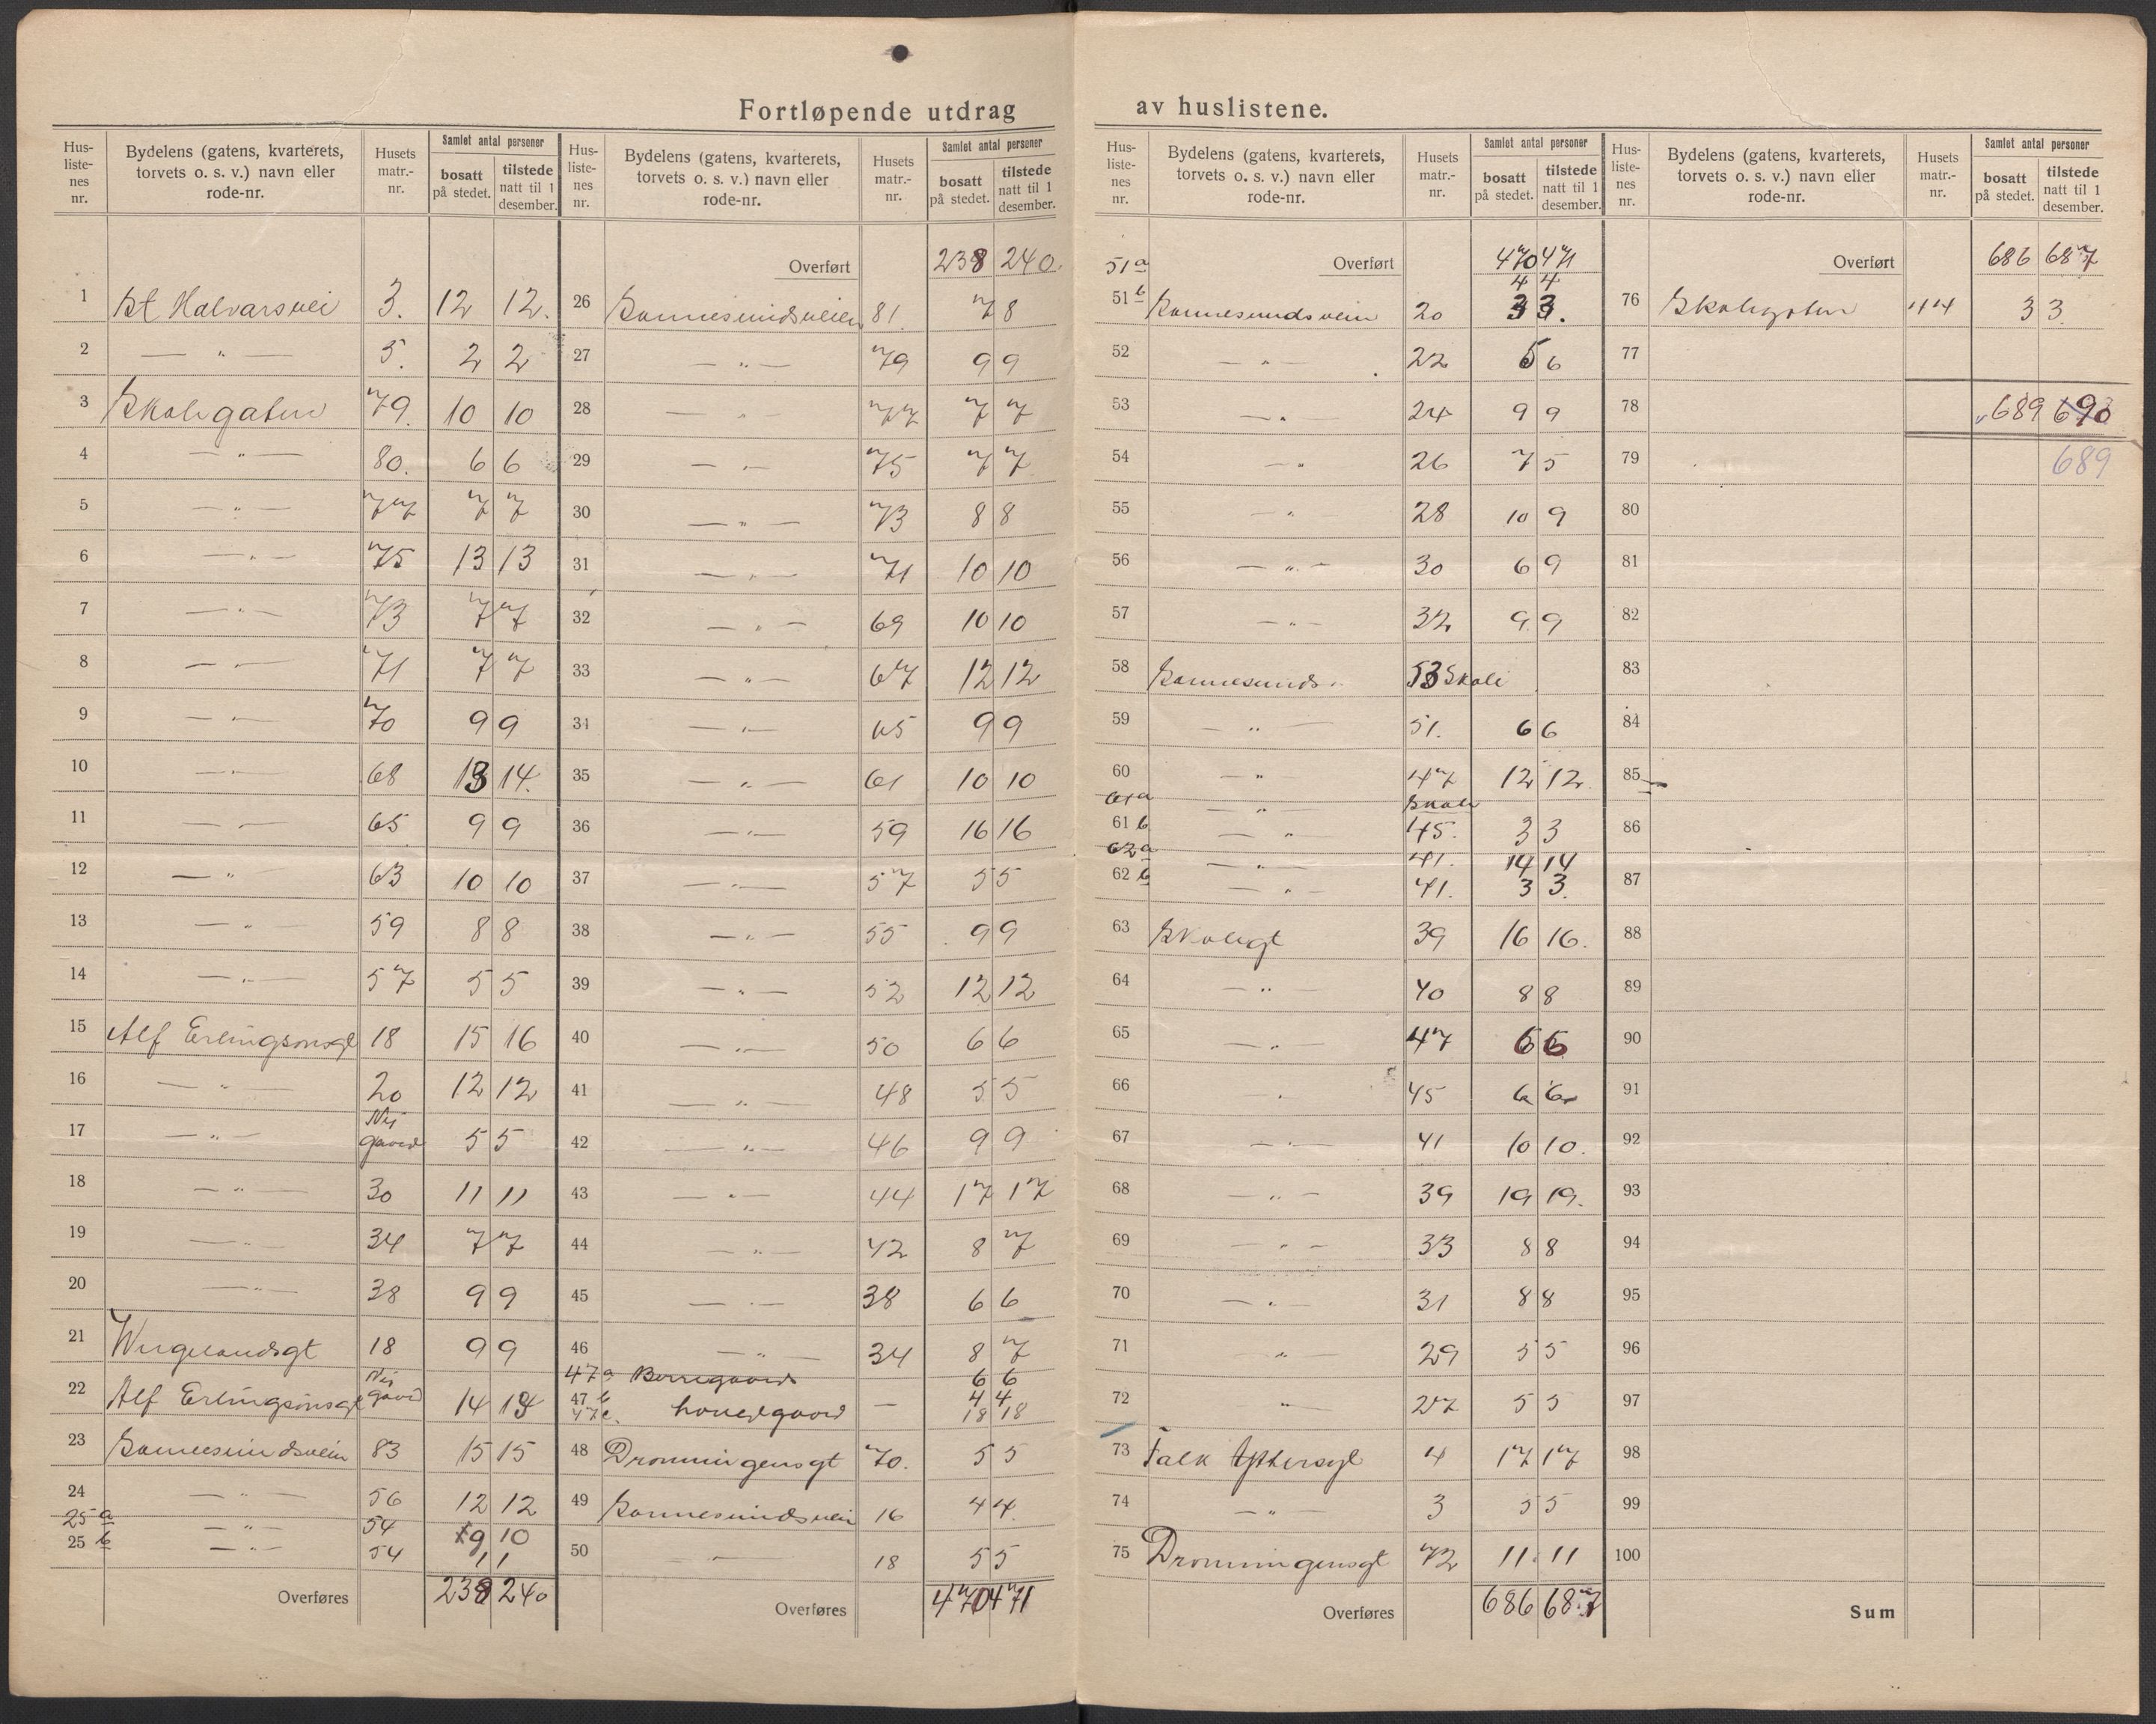 Fortløpende utdrag av huslistene.
Hus-listenes nr. | Bydelens (gatens, kvarterets, torvets o. s. v.) navn eller rode-nr. | Husets matr.-nr. | Samlet antal personer bosatt på stedet. | tilstede natt til 1 desember.
1 St Halvarsvei 3. 12 12.
2 — " — 5. 2 2
3 Skolegaten 79. 10 10
4 — " — 80. 6 6
5 — " — 77 7 7
6 — " — 75 13 13
7 — " — 73 7 7
8 — " — 71 7 7
9 — " — 70 9 9
10 — " — 68 13 14.
11 — " — 65 9 9
12 — " — 63 10 10
13 — " — 59 8 8
14 — " — 57 5 5
15 Alf Erlingsønsgt 18 15 16
16 — " — 20 12 12
17 — " — Ny gaard 5 5
18 — " — 30 11 11
19 — " — 34 7 7
20 — " — 38 9 9
21 Wergelandsgt 18 9 9
22 Alf Erlingsønsgt Ny gaard 14 13
23 Sannesundsveien 83 15 15
24 — " — 56 12 12
25 a — " — 54 9 10
25 b — " — 54 1 1
Overføres 238 240
Hus-listenes nr. | Bydelens (gatens, kvarterets, torvets o. s. v.) navn eller rode-nr. | Husets matr.-nr. | Samlet antal personer bosatt på stedet. | tilstede natt til 1 desember.
Overført 238 240.
26 Sannesundsveien 81. 7 8
27 — " — 79 9 9
28 — " — 77 7 7
29 — " — 75 7 7
30 — " — 73 8 8
31 — " — 71 10 10
32 — " — 69 10 10
33 — " — 67 12 12
34 — " — 65 9 9
35 — " — 61 10 10
36 — " — 59 16 16
37 — " — 57 5 5
38 — " — 55 9 9
39 — " — 52 12 12
40 — " — 50 6 6
41 — " — 48 5 5
42 — " — 46 9 9
43 — " — 44 17 17
44 — " — 42 8 7
45 — " — 38 6 6
46 — " — 34 8 7
47 a Borregaards 6 6
47 b 4 4
47 c. hovedgaard — 18 18
48 Dronningensgt 70. 5 5
49 Sannesundsveien 16 4 4.
50 — " — 18 5 5
Overføres 470 471
Hus-listenes nr. | Bydelens (gatens, kvarterets, torvets o. s. v.) navn eller rode-nr. | Husets matr.-nr. | Samlet antal personer bosatt på stedet. | tilstede natt til 1 desember.
Overført 470 471
51 a 4 4
51 b Sannesundsveien 20 3 3.
52 — " — 22 5 6
53 — " 24 9 9
54 — " 26 7 5
55 — " 28 10 9
56 — " — 30 6 9
57 — " — 32 9 9
58 Sannesunds " 53 Skole
59 — " — 51. 6 6
60 — " 47 12 12
61 a — " Skole
61 b — " 45. 3 3
62 a — " — 41. 14 14
62 b — " — 41. 3 3.
63 Skolegt 39 16 16.
64 — " — 40 8 8
65 — " — 47 6 6
66 " 45 6 6
67 — " — 41 10 10.
68 — " — 39 19 19.
69 — " — 33 8 8
70 — " — 31 8 8
71 " 29 5 5
72 " — 27 5 5
73 4 17 17
74 — " — 3 5 5
75 Dronningensgt 72 11 11
Overføres 686 687
Hus-listenes nr. | Bydelens (gatens, kvarterets, torvets o. s. v.) navn eller rode-nr. | Husets matr.-nr. | Samlet antal personer bosatt på stedet. | tilstede natt til 1 desember.
Overført 686 687
76 Skolegaten 44 3 3
77
78 689 690
79 689
80
81
82
83
84
85
86
87
88
89
90
91
92
93
94
95
96
97
98
99
100
Sum